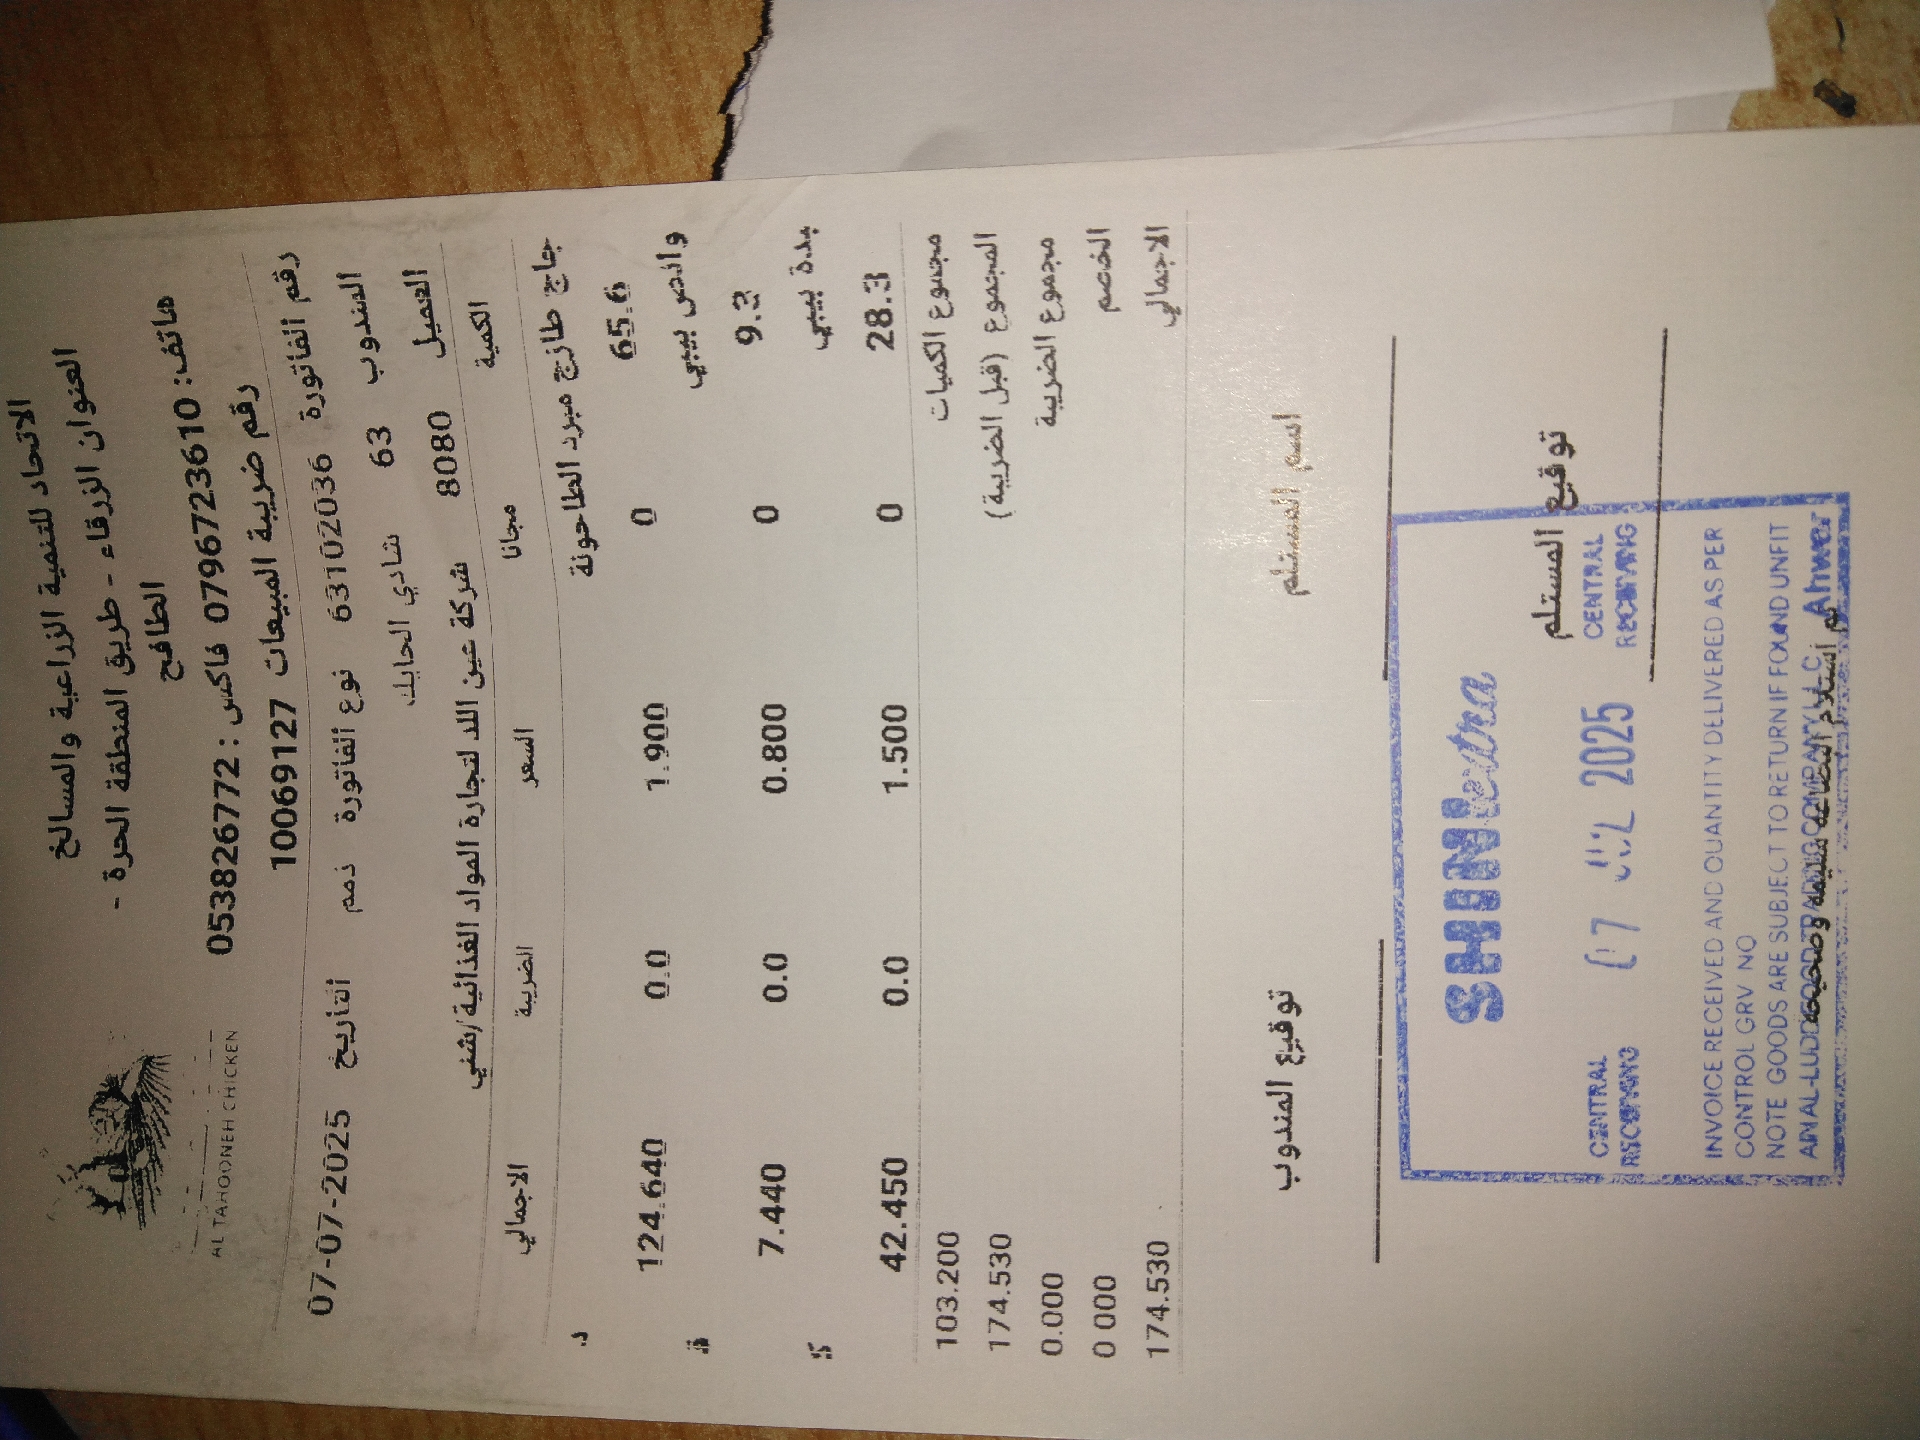 الاتحاد للتنمية الزراعية والمسالخ
العنوان الزرقاء - طريق المنطقة الحرة -
الطافح
هاتف: 0796723610 فاكس: 053826772
رقم ضريبة المبيعات 10069127
AL TAHOONEH CHICKEN
رقم الفاتورة 63102036 نوع الفاتورة ذمم التاريخ 07-07-2025
المندوب 63 شادي الحايك
العميل 8080 شركة عين اللد لتجارة المواد الغذائية/شني
الكمية مجانا السعر الضريبة الاجمالي
جاج طازج مبرد الطاحونة
65.6 0 1.900 0.0 124.640
وانص بيبي
9.3 0 0.800 0.0 7.440
بدة بيبي
28.3 0 1.500 0.0 42.450
مجموع الكميات 103.200
المجموع (قبل الضريبة) 174.530
مجموع الضريبة 0.000
الخصم 0 000
الاجمالي 174.530
اسم المستلم توقيع المندوب
توقيع المستلم
SHINI extra
CENTRAL RECEIVING 07 JUL 2025 CENTRAL RECEIVING
INVOICE RECEIVED AND QUANTITY DELIVERED AS PER
CONTROL GRV NO
NOTE GOODS ARE SUBJECT TO RETURN IF FOUND UNFIT
تم استلام البضاعة سليمة وصحيحة